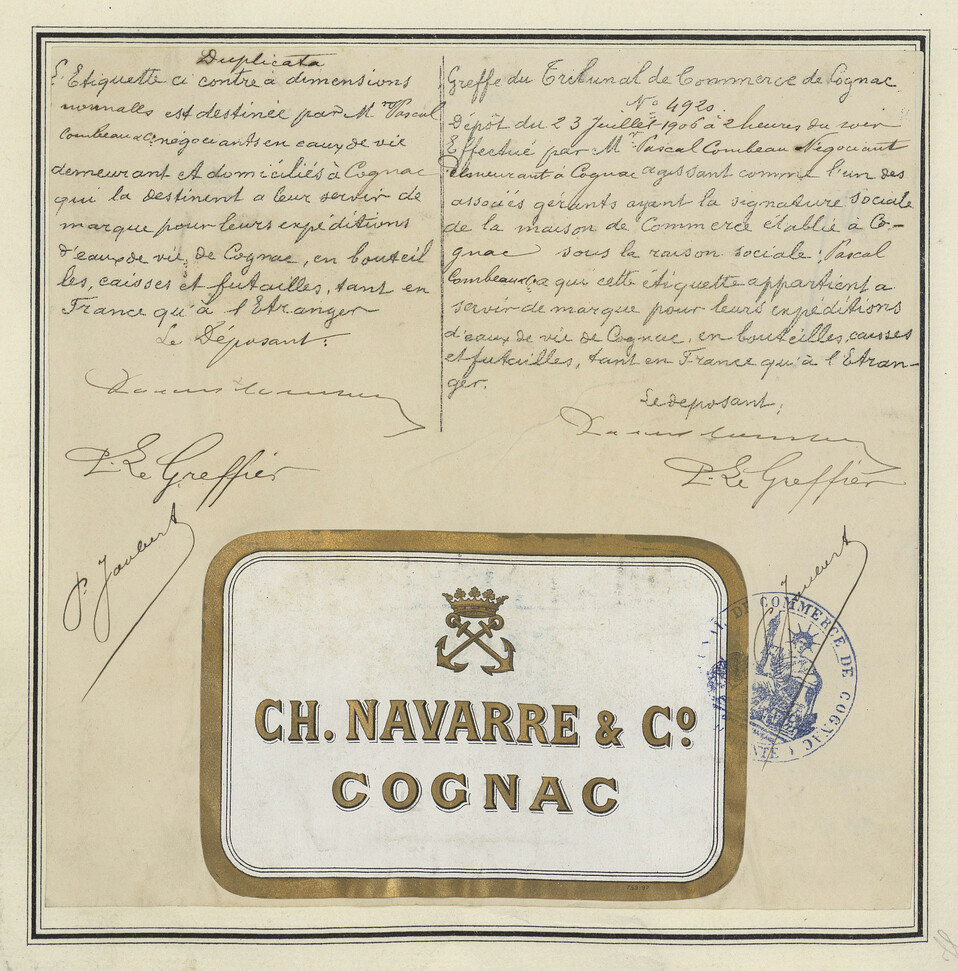 Duplicata
L'Etiquette ci contre à dimensions
normalles est destinée par Mr Pascal
Combeau & Co négociants en eaux de vie
demeurant et domiciliés à Cognac
qui la destinent a leur servir de
marque pour leurs expéditions
d'eaux de vie, de Cognac, en bouteil
les, caisses et futailles, tant en
France qu'à l'Etranger
Le Déposant:
P. Le Greffier
P. Joubert
Greffe du Tribunal de Commerce de Cognac
No 4920
Dépôt du 23 Juillet 1906 à 2 heures du soir
Effectué par Mr Pascal Combeau Négociant
demeurant à Cognac agissant comme l'un des
associés gérants ayant la signature sociale
de la maison de Commerce établie à Co-
gnac sous la raison sociale, Pascal
Combeau & Co a qui cette étiquette appartient a
servir de marque pour leurs expéditions
d'eaux de vie de Cognac, en bouteilles, caisses
et futailles, tant en France qu'à l'Etran-
ger.
Le deposant;
P. Le Greffier
Joubert
DE COMMERCE DE COGNAC
CH. NAVARRE & Co
COGNAC